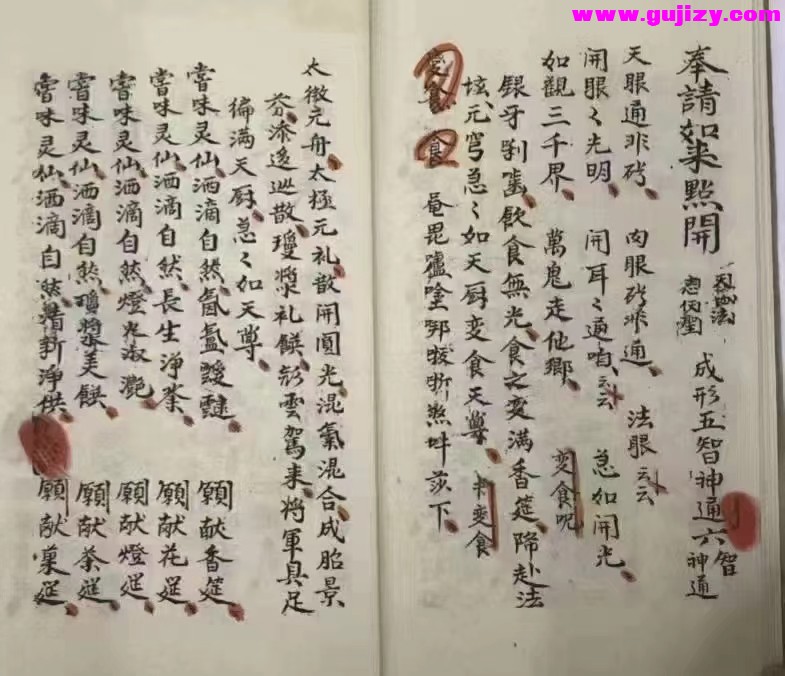 www.gujizy.com
奉請如来點開 成形五智神通六智神通
天眼通非碍、肉眼碍非通、法眼云云
開眼〻光明、開耳〻通 云云 急如開光、
如觀三千界、萬鬼走他鄉、變食呪
銀牙 飲食無光、食之変满香筵、降赴法
坛、元穹急〻如天厨变食天尊、 变食
食 食 唵毘嚧 下
太微元舟、太極元礼、散開圓光、混氣混合成胎景、
芬、添 廵散、瓊漿礼饌、彩雲駕来、將軍具足
徧满天厨、急〻如天尊、
嘗味灵仙、洒滴自然、氤氲靉靆、願献香筵、
嘗味灵仙、洒滴自然、長生淨 、願献花筵、
嘗味灵仙、洒滴自然、燈光 灔、願献燈筵、
嘗味灵仙、洒滴自然、瓊漿美饌、願献茶筵、
嘗味灵仙、洒滴自然、 新淨供、願献菓筵、